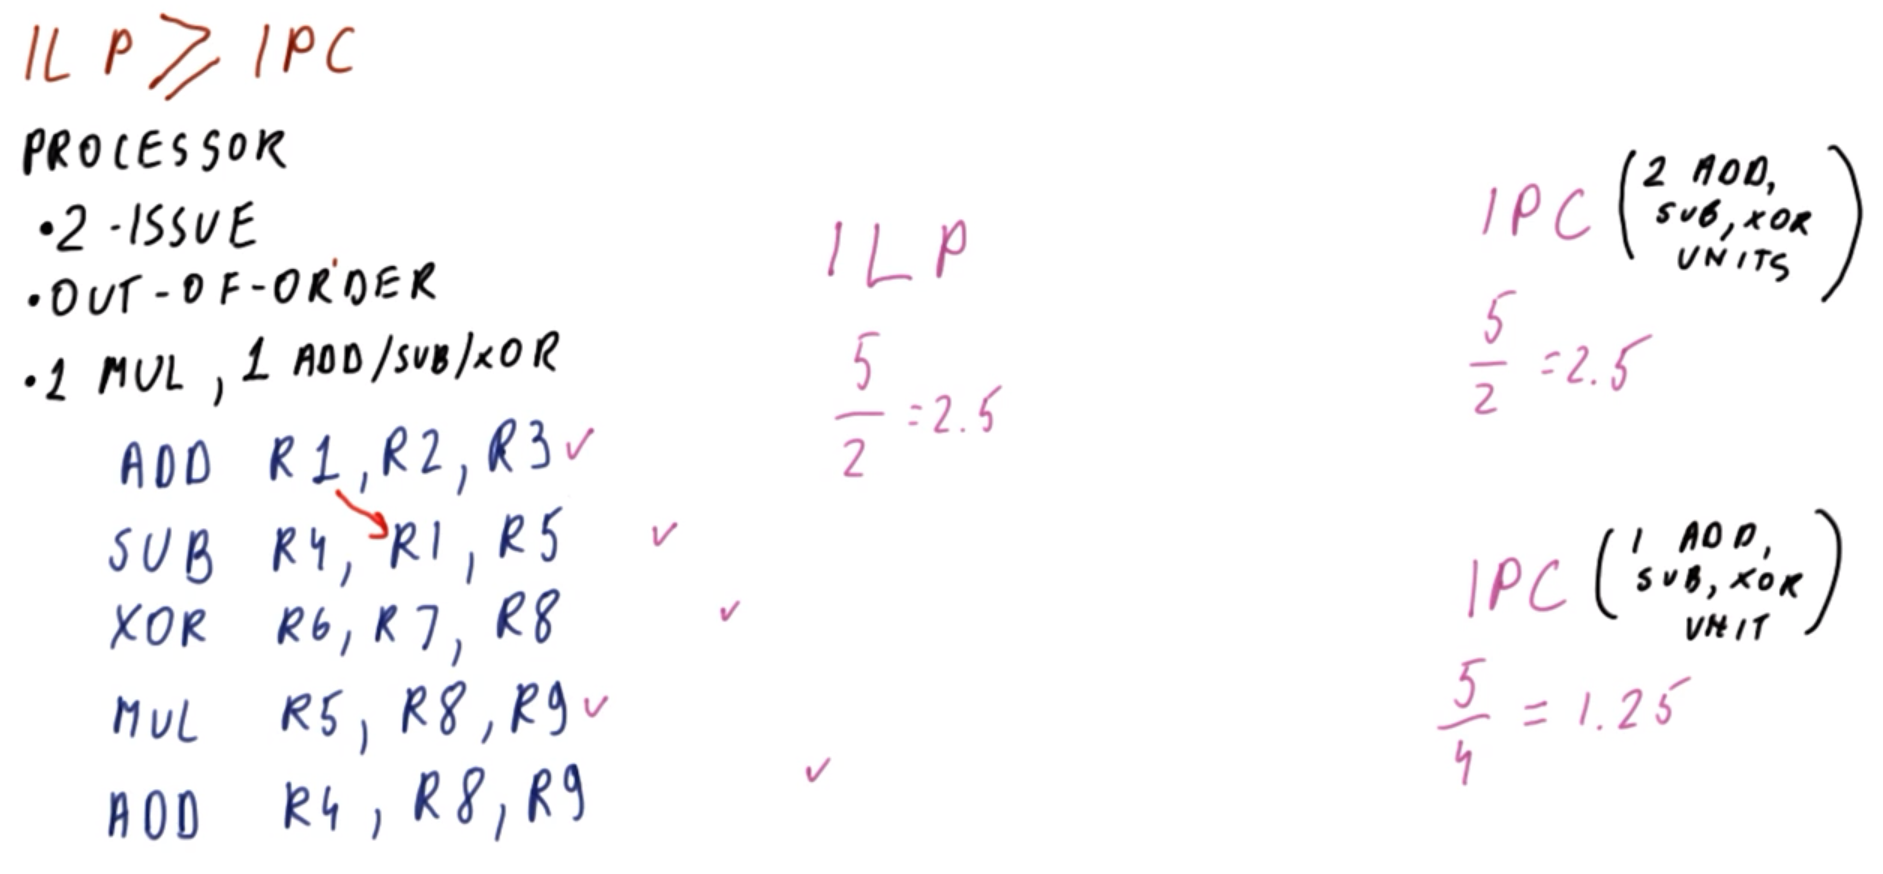 ILP ≥ IPC
PROCESSOR
• 2-ISSUE
• OUT-OF-ORDER
• 1 MUL, 1 ADD/SUB/XOR
ADD R1, R2, R3 ✓
SUB R4, R1, R5 ✓
XOR R6, R7, R8 ✓
MUL R5, R8, R9 ✓
ADD R4, R8, R9 ✓
ILP
5/2 = 2.5
IPC (2 ADD,
SUB, XOR
UNITS)
5/2 = 2.5
IPC (1 ADD,
SUB, XOR
UNIT)
5/4 = 1.25